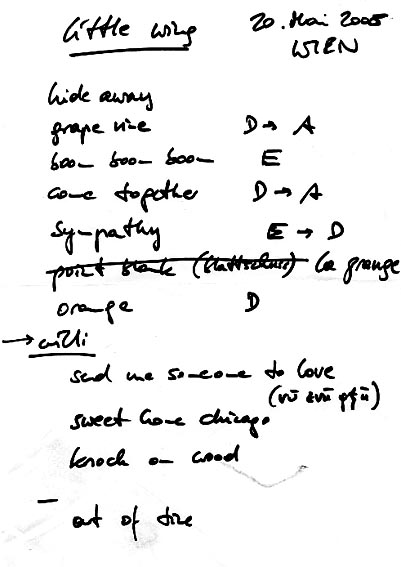 little wing 20. Mai 2005
WIEN
hide away
grape vine D → A
boom boom boom E
come together D → A
Sympathy E → D
point blank (Blattschuss) la grange
orange D
→ willi
send me someone to love
(vü zvü gfü)
sweet home chicago
knock on wood
out of time